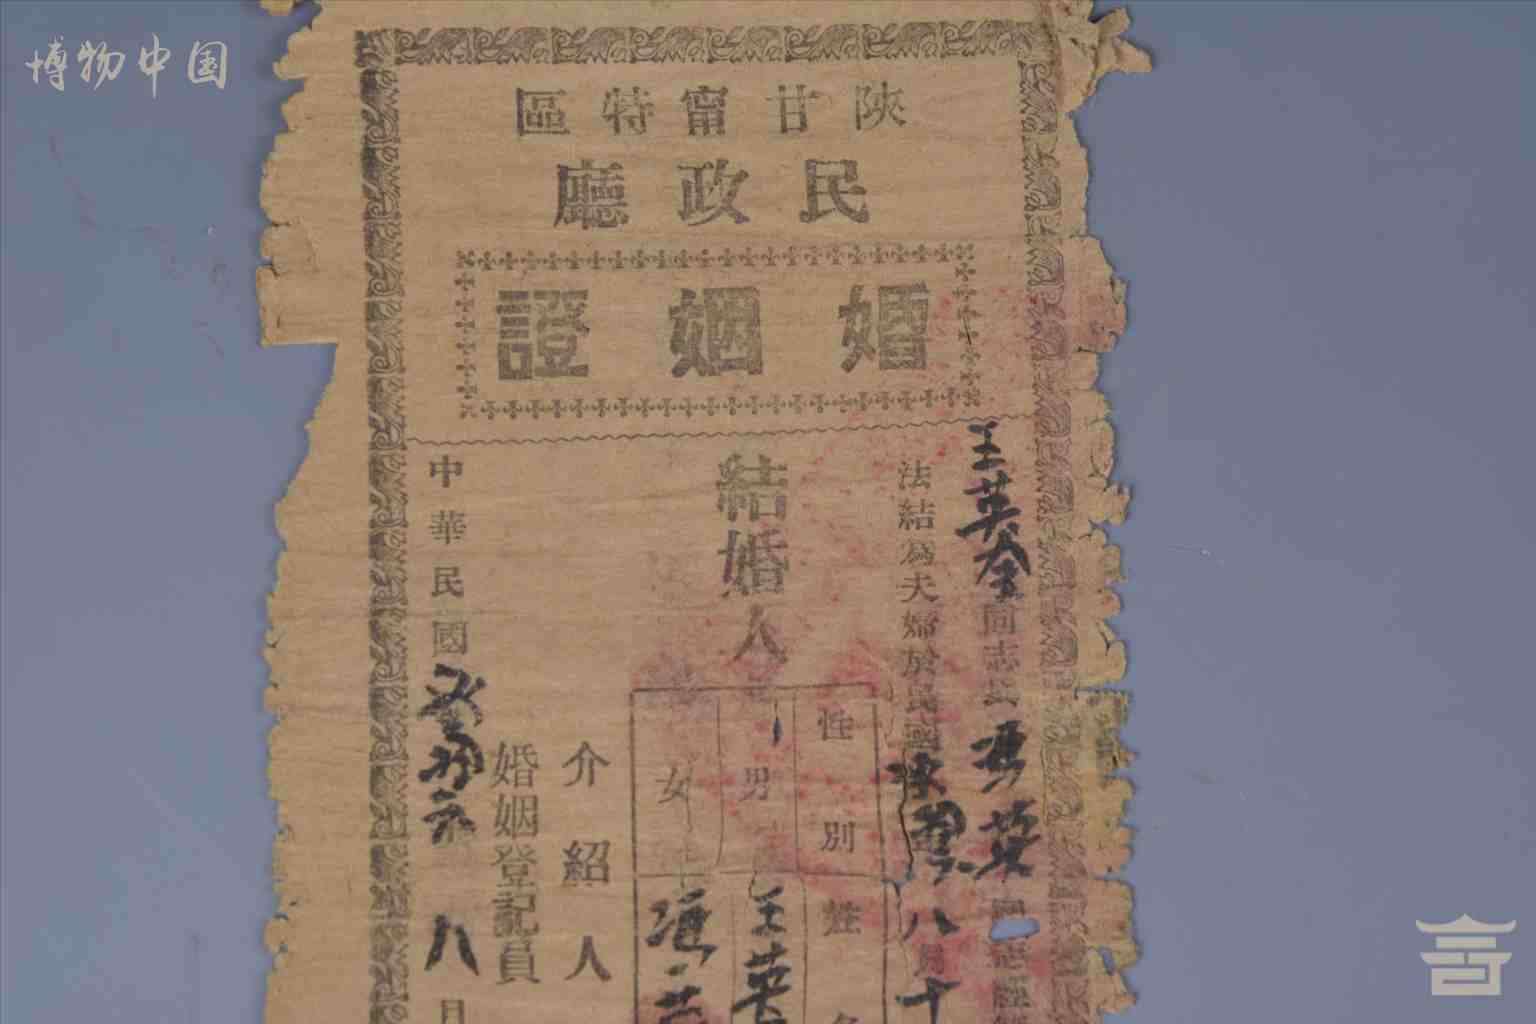 博物中国
陝甘甯特區
民政廳
婚姻證
王英奎同志與馮英同志經
法結為夫婦於民國 八月十
結婚人
性別 姓名
男 王英
女 馮
介紹人
婚姻登記員
中華民國 八月